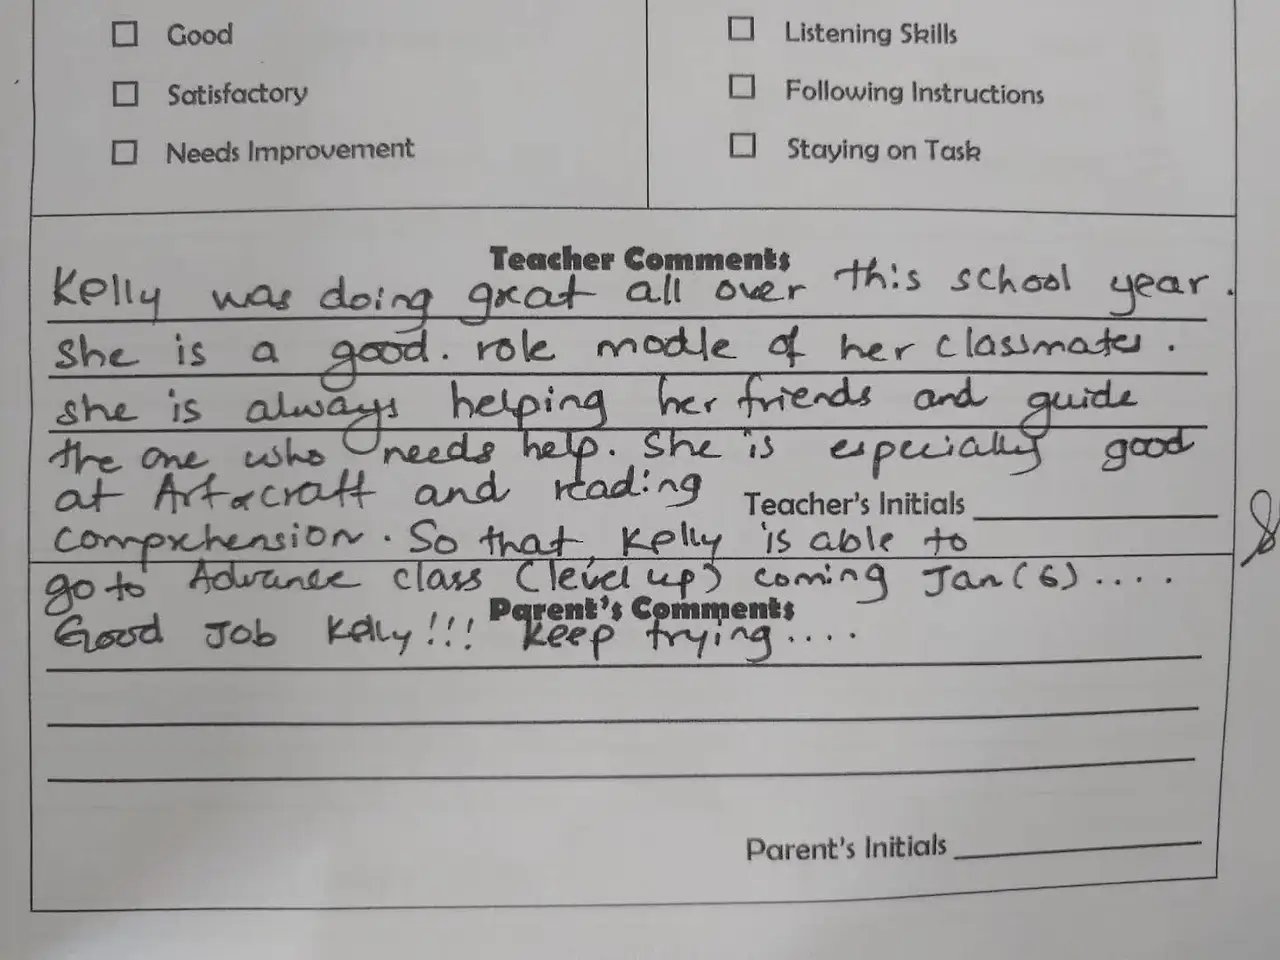 Good
Listening Skills
Satisfactory
Following Instructions
Needs Improvement
Staying on Task
Teacher Comments
Kelly was doing great all over this school year.
she is a good. role modle of her classmates.
she is always helping her friends and guide
the one who needs help. She is especially good
at Art & craft and reading
Teacher's Initials
comprehension. So that, Kelly is able to
go to Advance class (level up) coming Jan (6)....
Parent's Comments
Good Job Kelly!!! Keep trying....
Parent's Initials